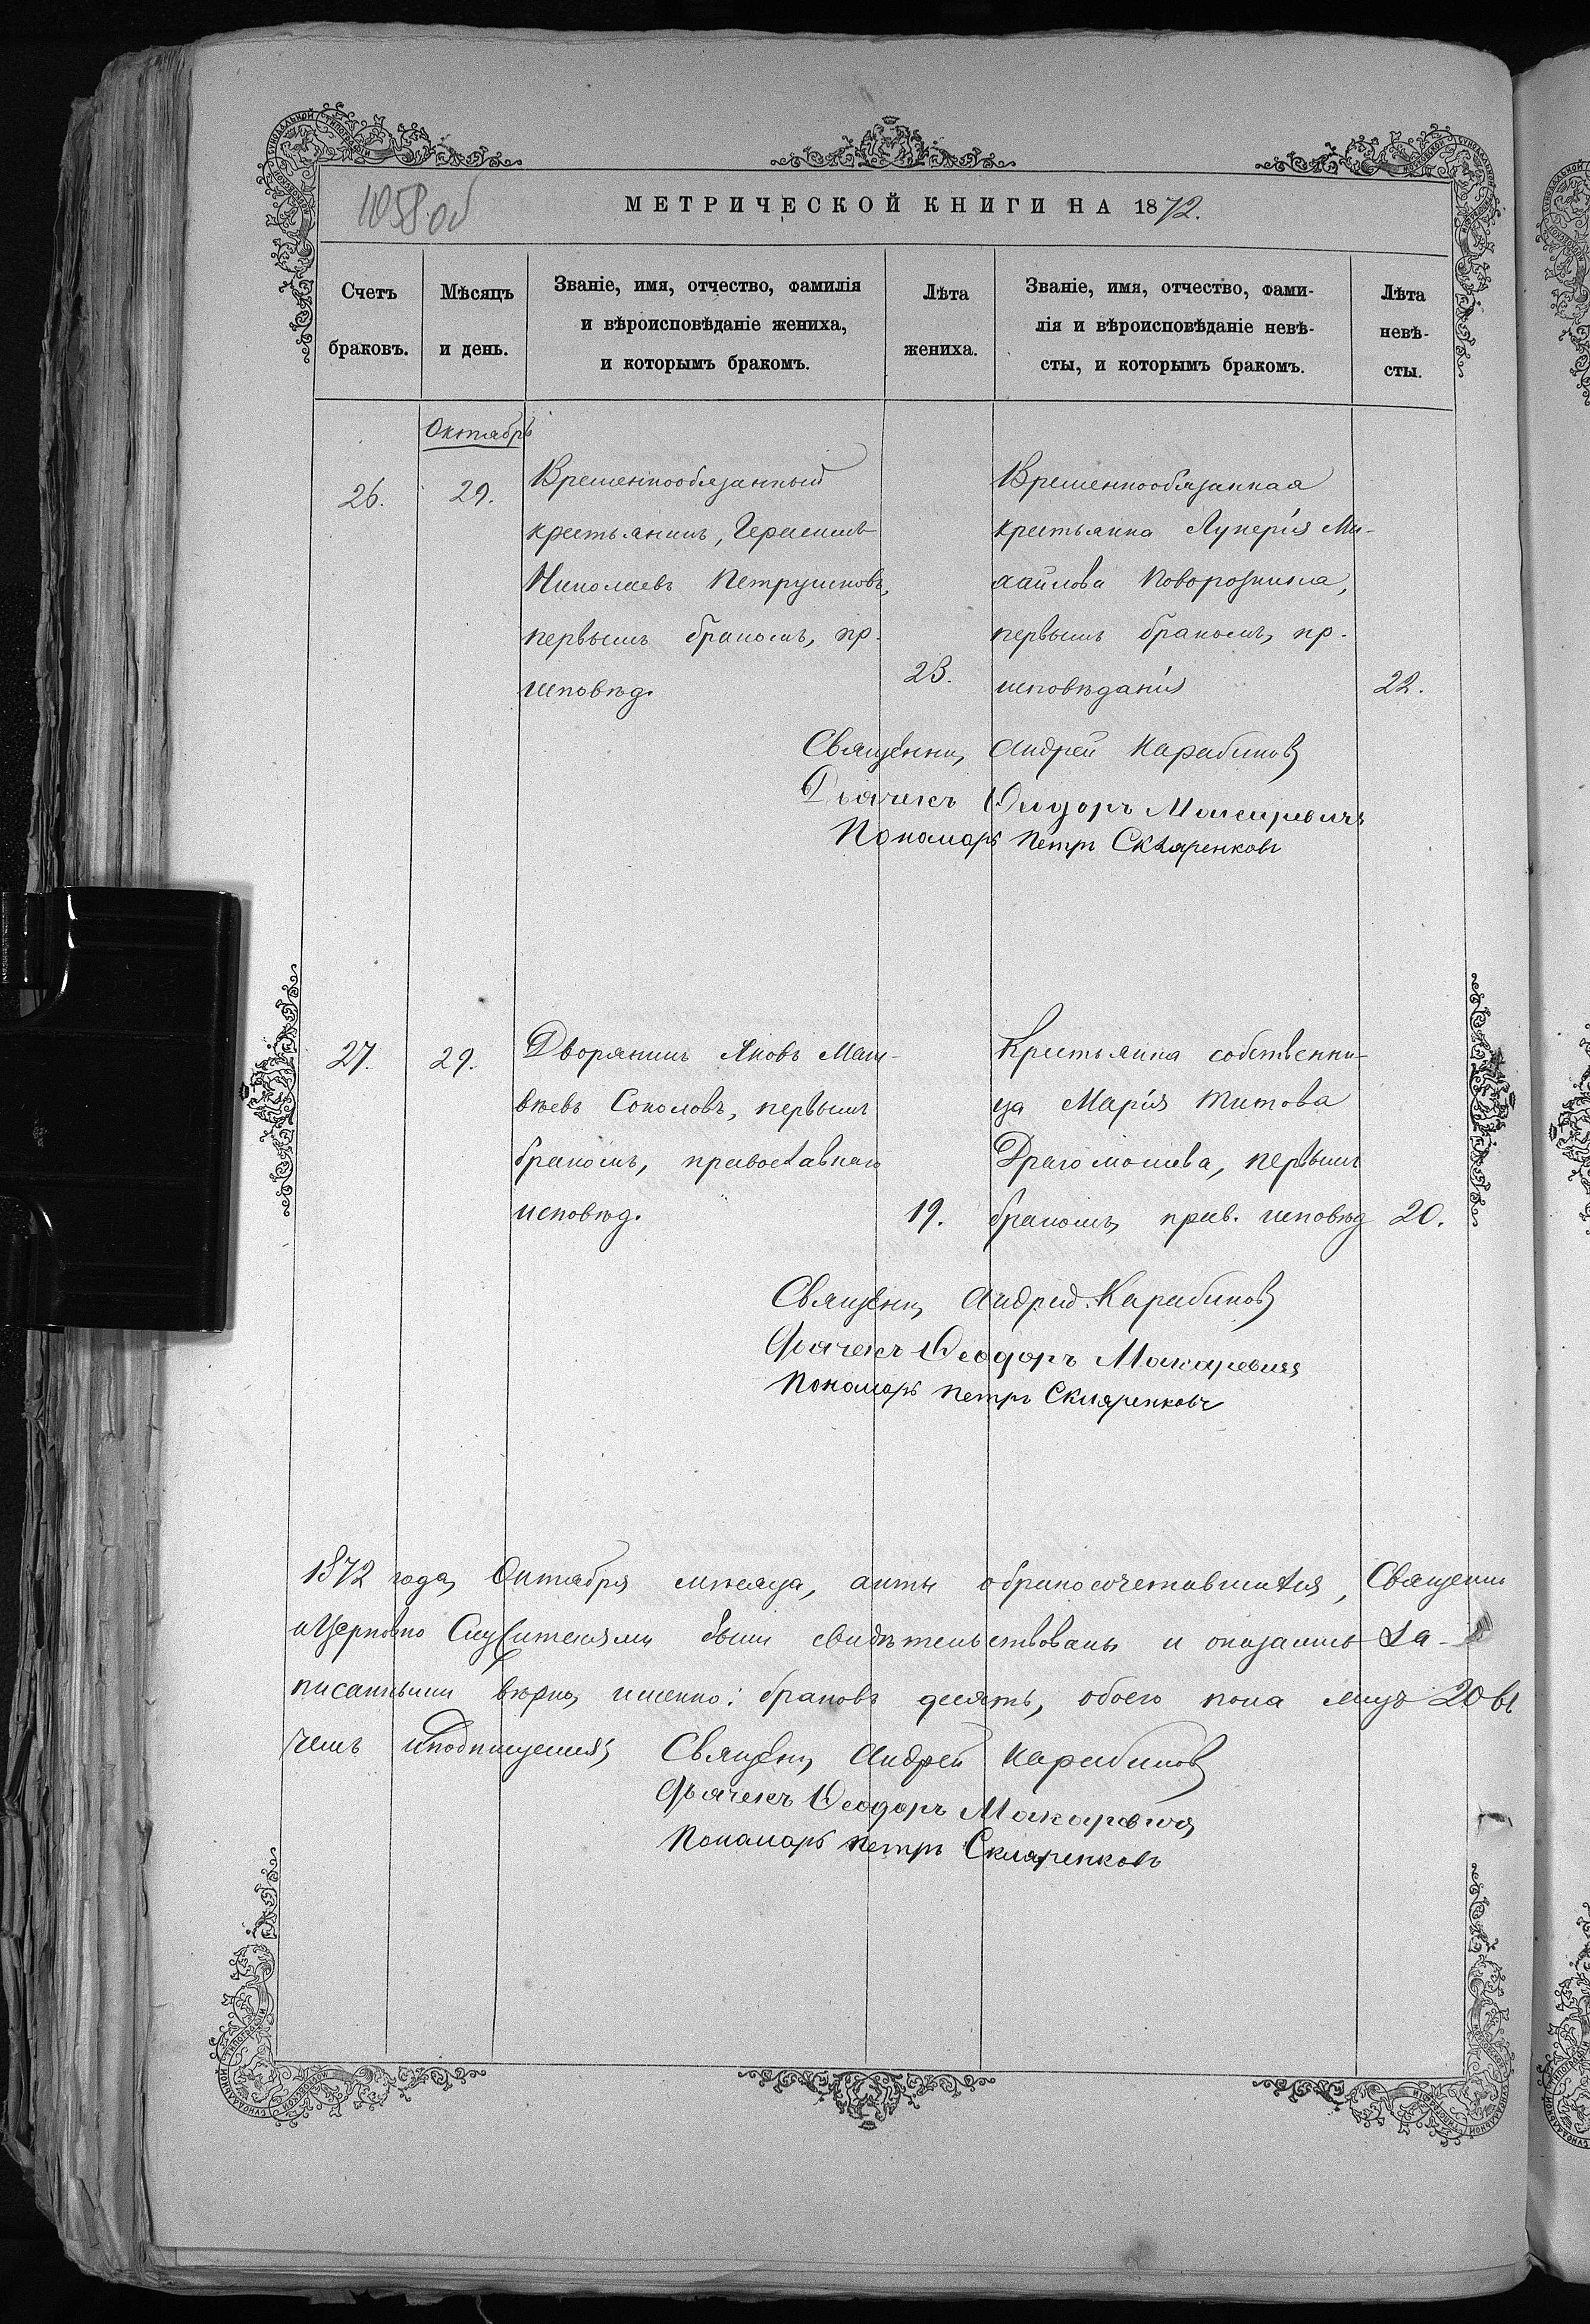 1058 об
МЕТРИЧЕСКОЙ КНИГИ НА 1872.
Счетъ браковъ.
Мѣсяцъ и день.
Званіе, имя, отчество, фамилія
и вѣроисповѣданіе жениха,
и которымъ бракомъ.
Лѣта жениха.
Званіе, имя, отчество, фами-
лія и вѣроисповѣданіе невѣ-
сты, и которымъ бракомъ.
Лѣта невѣ-
сты.
Октябрь
26.
29.
Временнообязанный
крестьянинъ, Герасимъ
Николаевъ Петрушковъ,
первымъ бракомъ, пр.
исповѣд.
23.
Временнообязанная
крестьянка Лукерія Ми-
хайлова Поворознина,
первымъ бракомъ, пр.
исповѣданія
22.
Священни, Андрей Карабиновъ
Дьячекъ Ѳеодоръ Макаревичъ
Пономарь Петръ Скляренковъ
27.
29.
Дворянинъ Яковъ Мат-
вѣевъ Соколовъ, первымъ
бракомъ, православнаго
исповѣд.
19.
Крестьянка собственни-
ца Марія Титова
Драгомошева, первымъ
бракомъ, прав. исповѣд
20.
Священ, Андрей Карабиновъ
Дьячекъ Ѳеодоръ Макаревичъ
Пономарь Петръ Скляренковъ
1872 года, Октября мѣсяца, акты о бракосочетавшихся, Священно
и Церковно Служителями были свидѣтельствованы и оказались за-
писанными вѣрно, именно: браковъ десять, обоего пола лицъ 20 въ
чемъ и подпишемся, Священ, Андрей Карабиновъ
Дьячекъ Ѳеодоръ Макаревичъ
Пономарь Петръ Скляренковъ